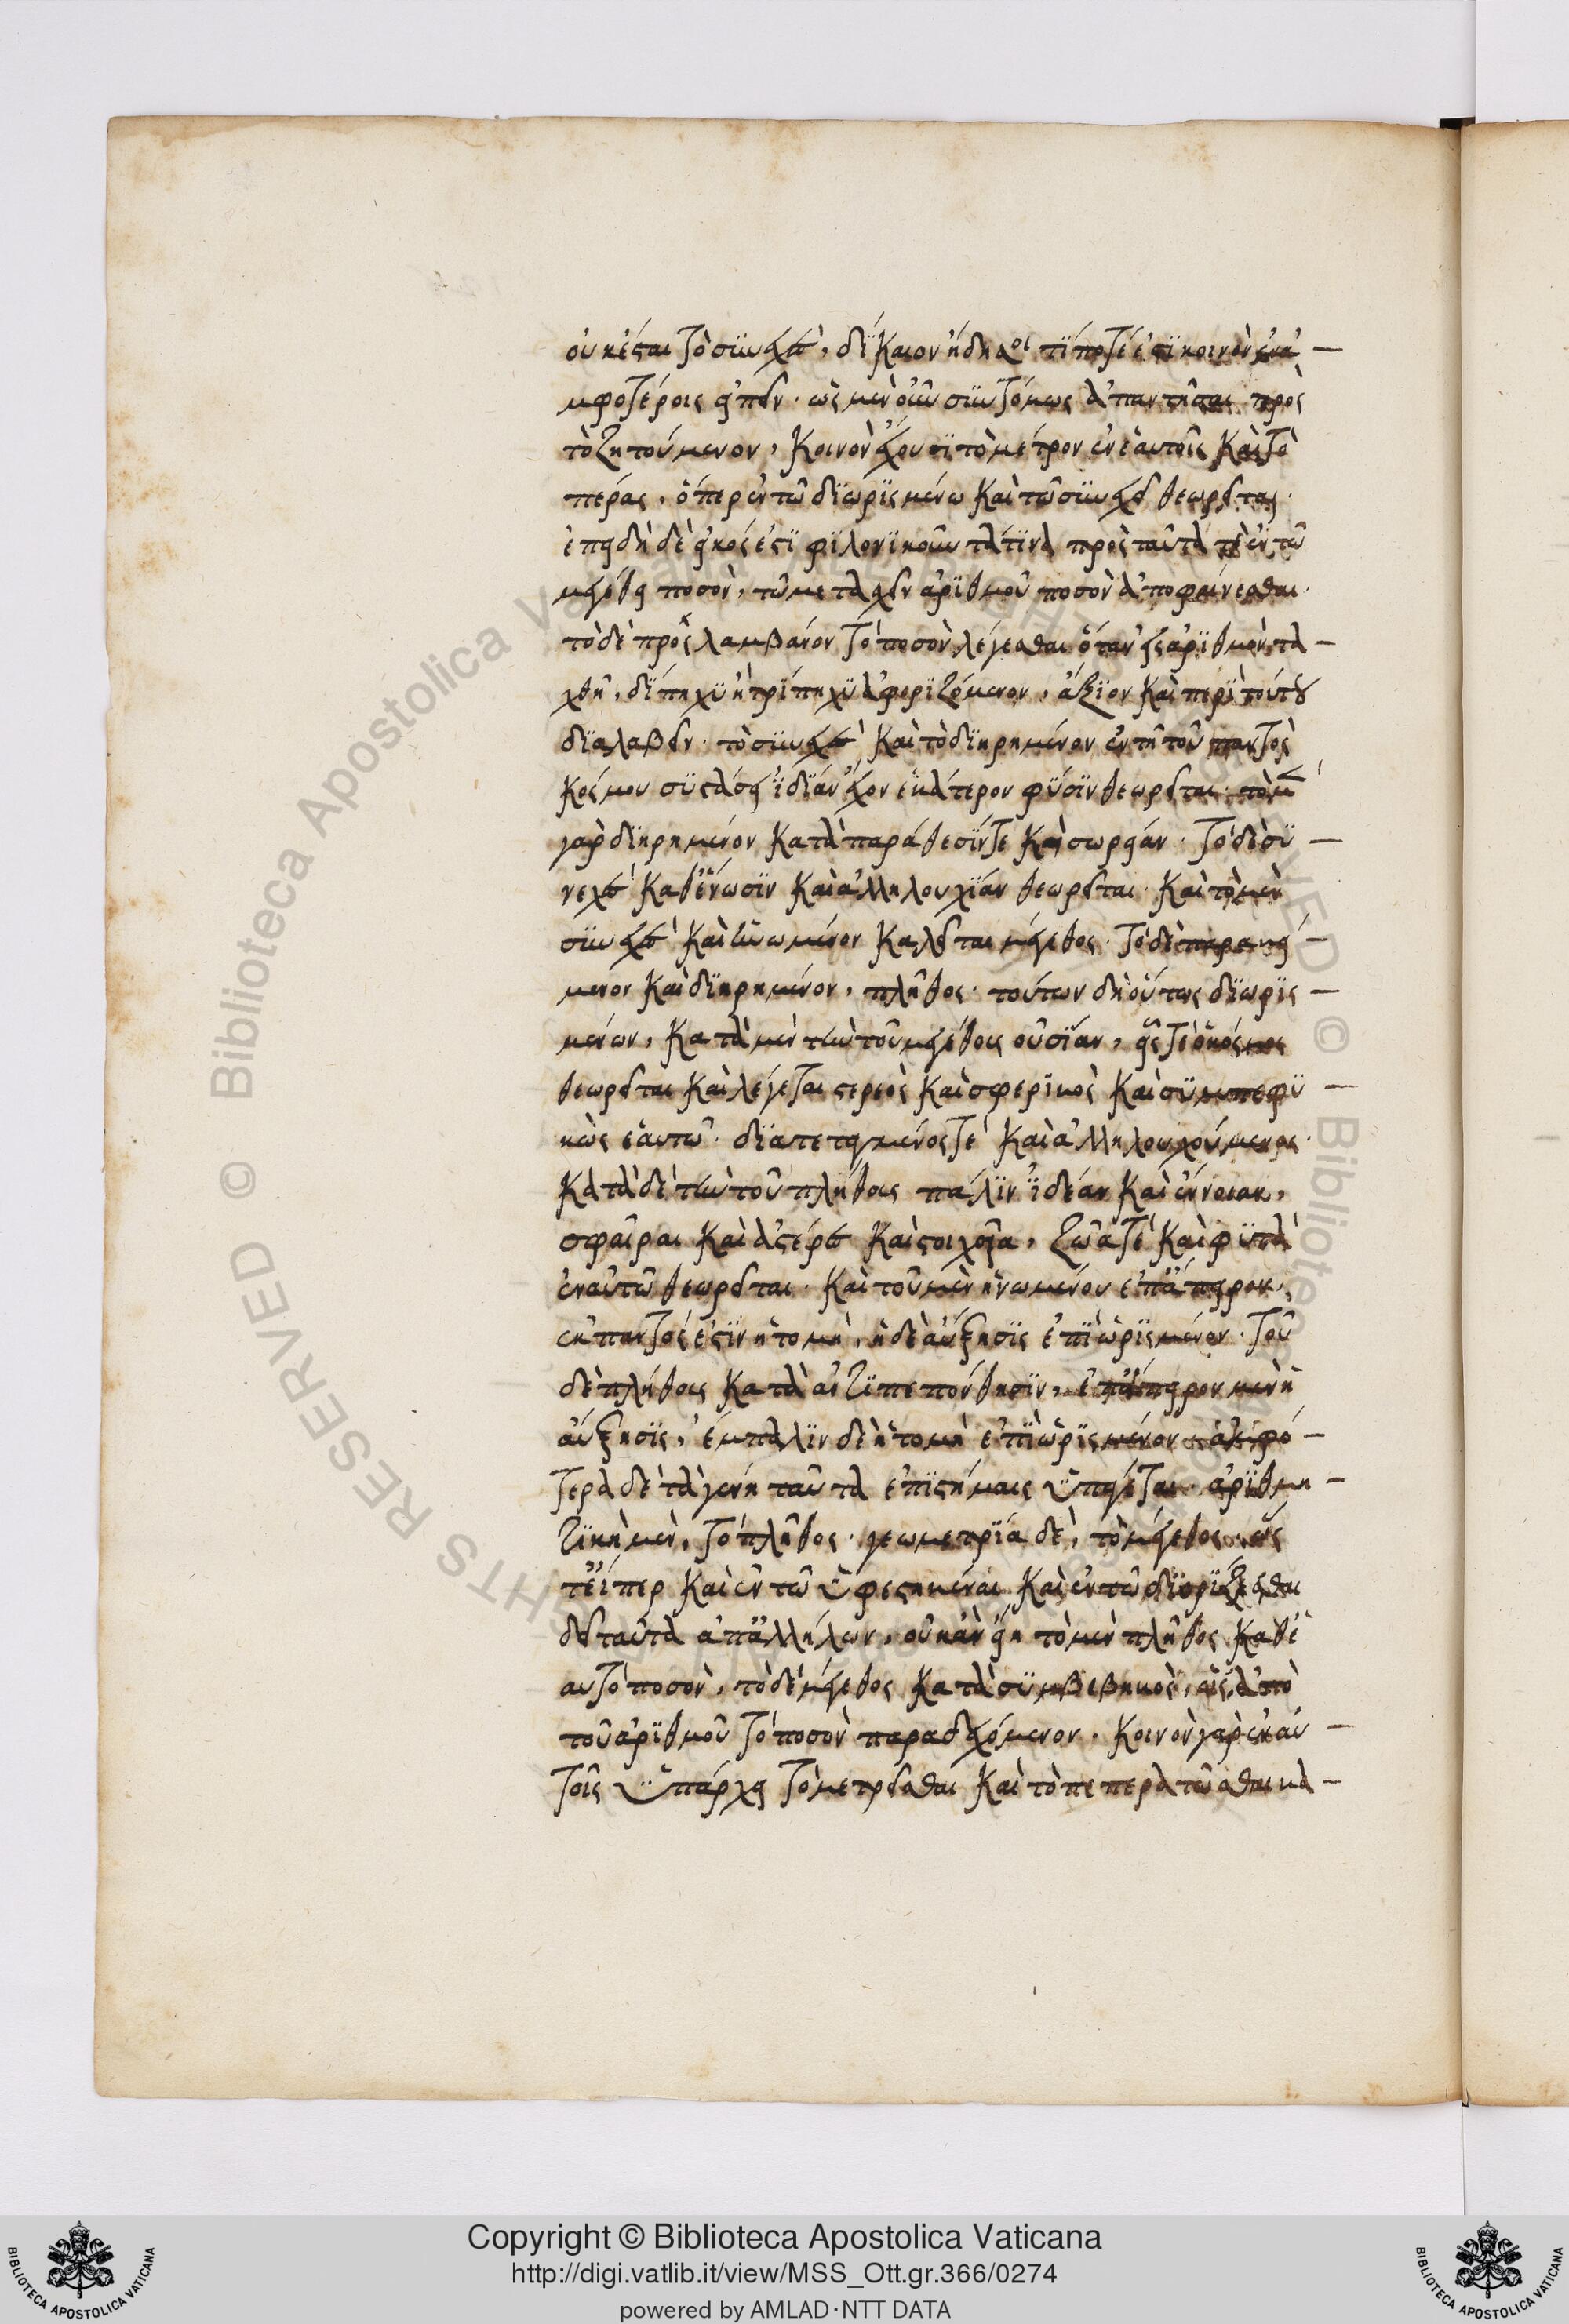 οὐκ ἔσται τὸ συνεχὲς, δίκαιον ἤδη σοι τί ποτέ ἐστι κοινὸν ἐν ἀ-
μφοτέροις εἰπεῖν. ὡς μὲν οὖν συντόμως ἀπαντῆσαι πρὸς
τὸ ζητούμενον, κοινὸν ἔχουσι τὸ μέτρον ἐν ἑαυτοῖς καὶ τὸ
πέρας, ὅπερ ἐν τῷ διωρισμένῳ καὶ τῷ συνεχεῖ θεωρεῖται.
ἐπειδὴ δὲ εἰκός ἐστι φιλονικοῦντά τινα πρὸς ταῦτα τὸ ἐν τῷ
μεγέθει ποσὸν, τῷ μετασχεῖν ἀριθμοῦ ποσὸν ἀποφαίνεσθαι.
τὸ δὲ προσλαμβάνον τὸ ποσὸν λέγεσθαι ὅταν εἰς ἀριθμὸν τα-
χθῇ, δίπηχυ ἢ τρίπηχυ ἀφοριζόμενον, ἄξιον καὶ περὶ τούτου
διαλαβεῖν. τὸ συνεχὲς καὶ τὸ διῃρημένον ἐν τῇ τοῦ παντὸς
κόσμου συστάσει ἰδίαν ἔχον ἑκάτερον φύσιν θεωρεῖται. τὸ μὲν
γὰρ διῃρημένον κατὰ παράθεσίν τε καὶ σωρείαν. τὸ δὲ συ-
νεχὲς καθ' ἕνωσιν καὶ ἀλληλουχίαν θεωρεῖται. καὶ τὸ μὲν
συνεχὲς καὶ ἡνωμένον καλεῖται μέγεθος. τὸ δὲ παρακεί-
μενον καὶ διῃρημένον, πλῆθος. τούτων δὴ οὕτως διωρισ-
μένων, κατὰ μὲν τὴν τοῦ μεγέθους οὐσίαν, εἷς τε ὁ κόσμος
θεωρεῖται καὶ λέγεται στερεὸς καὶ σφερικὸς καὶ συμπεφυ-
κὼς ἑαυτῷ. διατεταμένος τε καὶ ἀλληλουχούμενος.
κατὰ δὲ τὴν τοῦ πλήθους πάλιν ἰδέαν καὶ ἔννοιαν,
σφαῖραι καὶ ἀστέρες καὶ στοιχεῖα, ζῷά τε καὶ φυτὰ
ἐν αὐτῷ θεωρεῖται. καὶ τοῦ μὲν ἡνωμένου ἐπ' ἄπειρον,
ἐκ παντός ἐστιν ἡ τομὴ, ἡ δὲ αὔξησις ἐπὶ ὡρισμένον. τοῦ
δὲ πλήθους κατὰ ἀντιπεπόνθησιν, ἐπ' ἄπειρον μὲν ἡ
αὔξησις, ἔμπαλιν δὲ ἡ τομὴ ἐπὶ ὡρισμένον. ἀμφό-
τερα δὲ τὰ γένη ταῦτα ἐπιστήμαις ὑπάγεται. ἀριθμη-
τικὴ μὲν, τὸ πλῆθος. γεωμετρία δὲ, τὸ μέγεθος. ὥς
τε εἴπερ καὶ ἐν τῷ ὑφεστηκέναι καὶ ἐν τῷ διορίζεσθαι
δεῖ ταῦτα ἀπ' ἀλλήλων, οὐκ ἂν εἴη τὸ μὲν πλῆθος καθ' ἑ
αυτὸ ποσὸν, τὸ δὲ μέγεθος κατὰ συμβεβηκὸς, ὡς ἀπὸ
τοῦ ἀριθμοῦ τὸ ποσὸν παρασχόμενον. κοινὸν γὰρ ἐν αὐ-
τοῖς ὑπάρχει τὸ μετρεῖσθαι καὶ τὸ πεπερατῶσθαι κα-
Copyright © Biblioteca Apostolica Vaticana
http://digi.vatlib.it/view/MSS_Ott.gr.366/0274
powered by AMLAD·NTT DATA